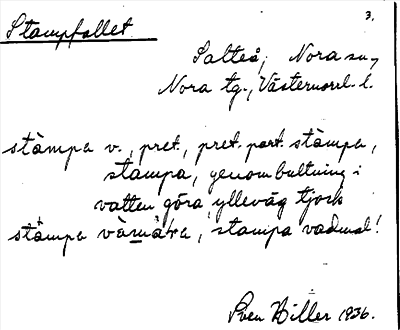 3.
Stampfallet
Salteå, Nora sn,
Nora tg., Västernorrl. l.
stàmpa v., pret., pret. part. stàmpa,
stampa, genom bultning i
vatten göra ylleväg tjock
stàmpa vàmàra, stampa vadmal!
Sven Hiller 1936.